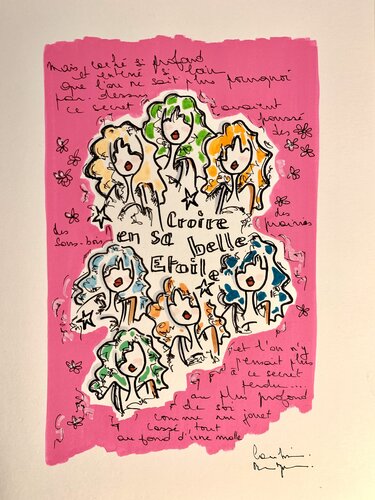 mais caché si profond
et enterré si loin
que l'on ne sait plus pourquoi
par-dessus
ce secret avaient
poussé
des
des sous-bois
des prairies
Croire
en sa belle
Etoile
et l'on n'y
pensait plus
à ce secret
perdu....
au plus profond
de soi
comme un jouet
cassé tout
au fond d'une malle